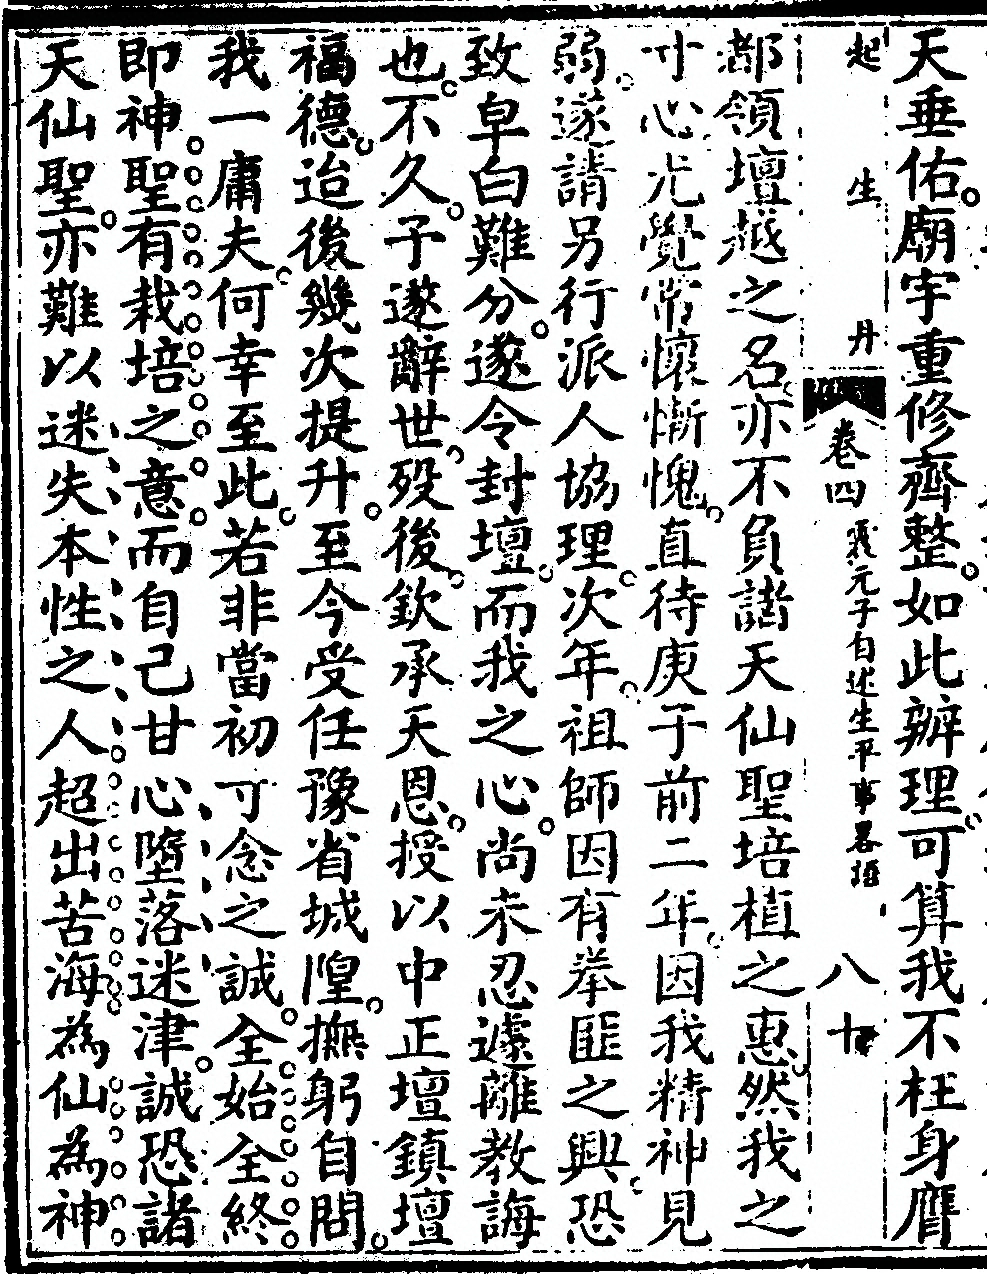 天垂佑廟宇重修齊整如此辦理可算我不枉身膺
起生丹 卷四 元子自述生平事畧 八十
都領壇越之名亦不負諸天仙聖培植之惠然我之
寸心尤覺常懷慚愧直待庚子前二年因我精神見
弱遂請另行派人協理次年祖師因有拳匪之興恐
致皁白難分遂令封壇而我之心尚未忍遽離教誨
也不久子遂辭世歿後欽承天恩授以中正壇鎮壇
福德迨後幾次提升至今受任豫省城隍撫躬自問
我一庸夫何幸至此若非當初寸念之誠全始全終
即神聖有栽培之意而自己甘心墮落迷津誠恐諸
天仙聖亦難以迷失本性之人超出苦海為仙為神